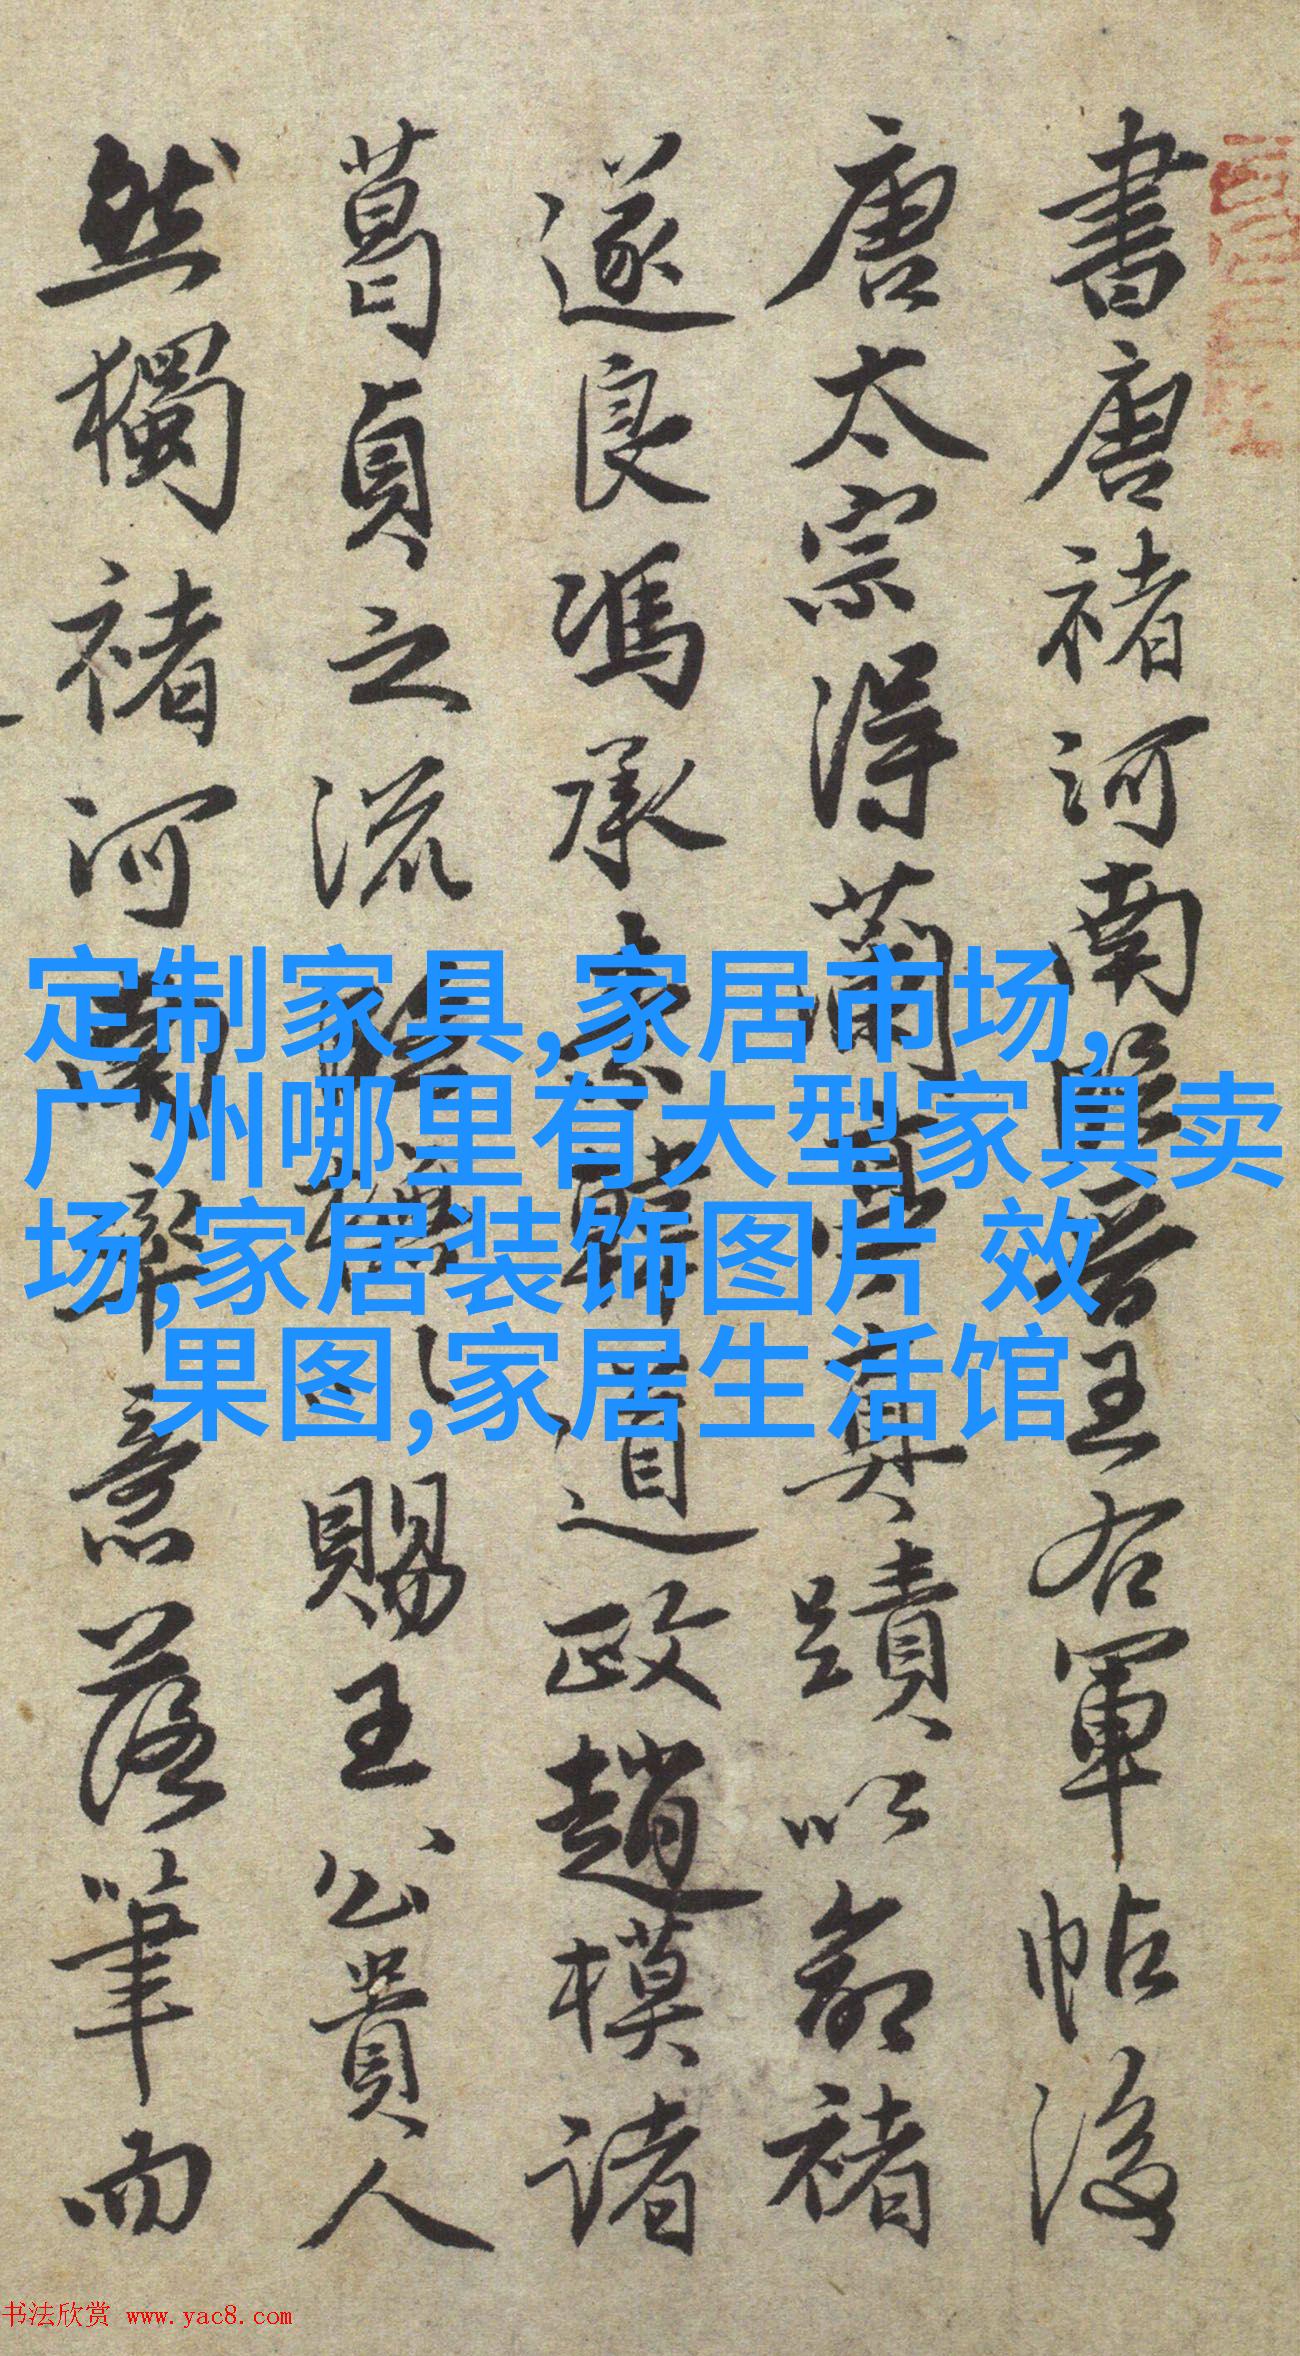 書唐褚河南臨晉王右軍帖後
唐太宗得蘭亭真蹟以命褚
遂良馮承素韓道政趙模諸
葛貞之流賜王公貴人
然獨褚河南率意落筆而
定制家具,家居市场,
广州哪里有大型家具卖
场,家居装饰图片 效
果图,家居生活馆
书法欣赏 www.yac8.com